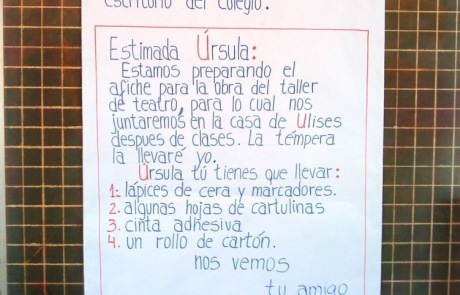 escritorio del colegio.
Estimada Úrsula:
Estamos preparando el
afiche para la obra del taller
de teatro, para lo cual nos
juntaremos en la casa de Ulises
despues de clases. La témpera
la llevaré yo.
Úrsula tú tienes que llevar:
1.- lápices de cera y marcadores.
2. algunas hojas de cartulinas
3. cinta adhesiva
4. un rollo de cartón.
nos vemos
tu amigo